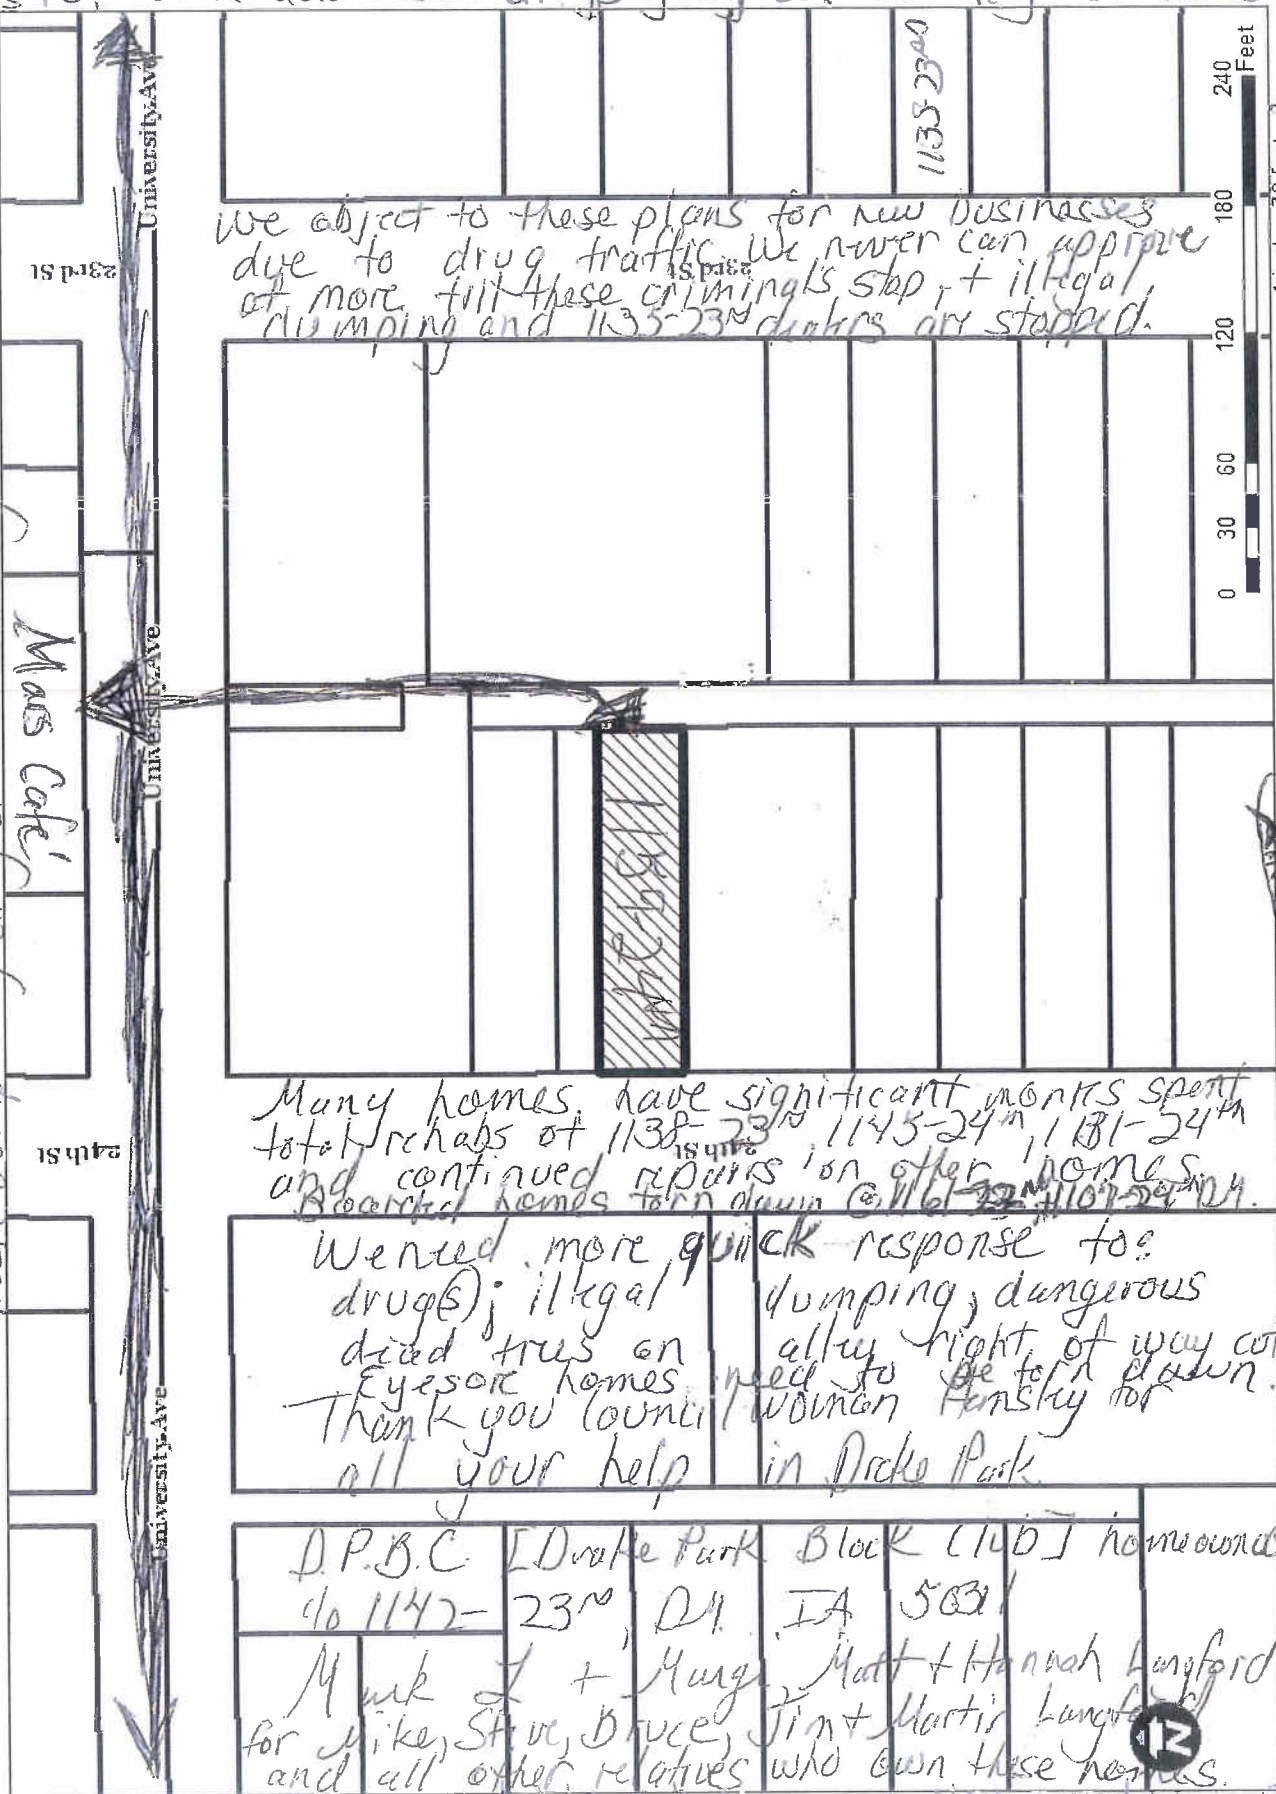 University Ave
1135-23rd
240
Feet
180
120
60
30
0
We object to these plans for new businesses
due to drug traffic. We never can approve
of more till these criminals stop, + illegal
dumping and 1135-23rd dealers are stopped.
23rd St
23rd St
University Ave
Mars Café
1154-24th
Many homes have significant monies spent
total rehabs of 1138-23rd, 1145-24th, 1181-24th
and continued repairs on other homes.
Boarded homes torn down @ 1161-22nd
24th St
24th St
We need more quick response to:
drug(s); illegal dumping, dangerous
dead trees on alley right of way
Eyesore homes need to be torn down.
Thank you Councilwoman Hensley for
all your help in Drake Park
University Ave
D.P.B.C. [Drake Park Block Club] homeowners
c/o 1142-23rd, DM. IA 50311
Mark L + Marge, Matt + Hannah Langford
for Mike, Steve, Bruce, Jim + Martin Langford
and all other relatives who own these homes.
N